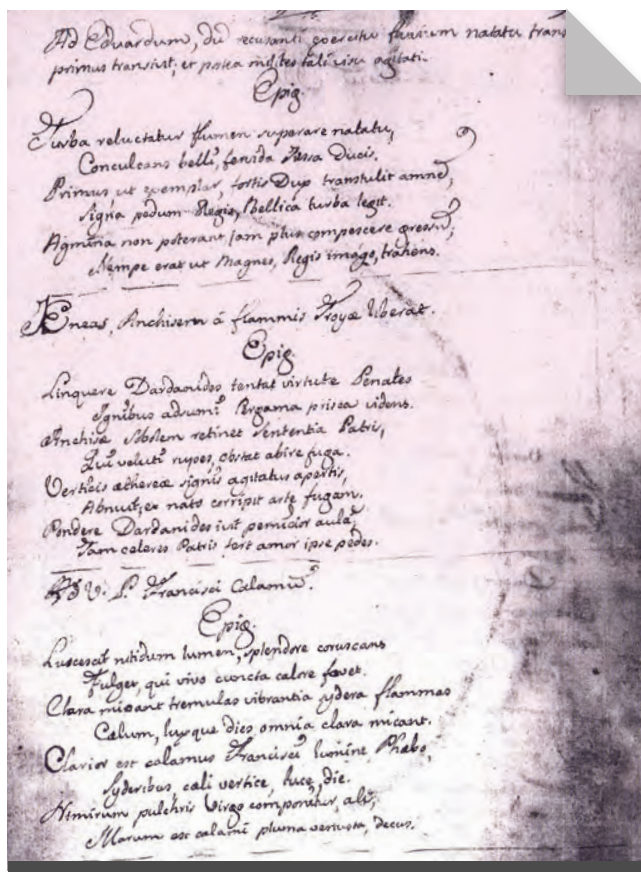 Ad Eduardum, dũ recusanti exercitu fluvium natatu trans
primus transivit, et postea milites tali visu agitati.
Epig.
Turba reluctatur flumen superare natatu,
Conculcans belli, fervida Jussa Ducis.
Primus ut exemplar, fortis Dux transtulit amnẽ,
Signa pedum Regis, Bellica turba legit.
Agmina non poterant jam plus compescere gressũ,
Nempe erat ut Magnes, Regis imago, trahens.
Æneas, Anchisem á flammis Troyæ liberat.
Epig.
Linquere Dardanides tentat virtute Penates
Ignibus adsumi Pergama prisca videns.
Anchisæ Sobolem retinet Sententia Patris,
Qui veluti rupes, obstat abire fuga.
Verticis æthereæ signis agitatus apertis,
Abnuit, ex nato corripit arte fugam.
Pondere Dardanides ivit pernicior aulâ,
Jam celeres Patris fert amor ipse pedes.
Ad V. P. Francisci Calamũ.
Epig.
Luscescat nitidum lumen, splendore coruscans
Fulget, qui vivo cuncta calore fovet.
Clara micant tremulas vibrantia sydera flammas
Cælum, luxque dies, omnia clara micant.
Clarior est calamus Francisci lumine Phæbo,
Syderibus, cæli vertice, luce, die.
Nimirum pulchris Virgo componitur, alis,
Harum est calami pluma venusta, decus.